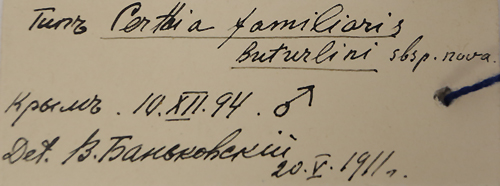 Типъ Certhia familiaris
Buturlini sbsp. nova.
Крымъ. 10.XII.94. ♂
Det. В. Баньковскій
20.V.1911 г.